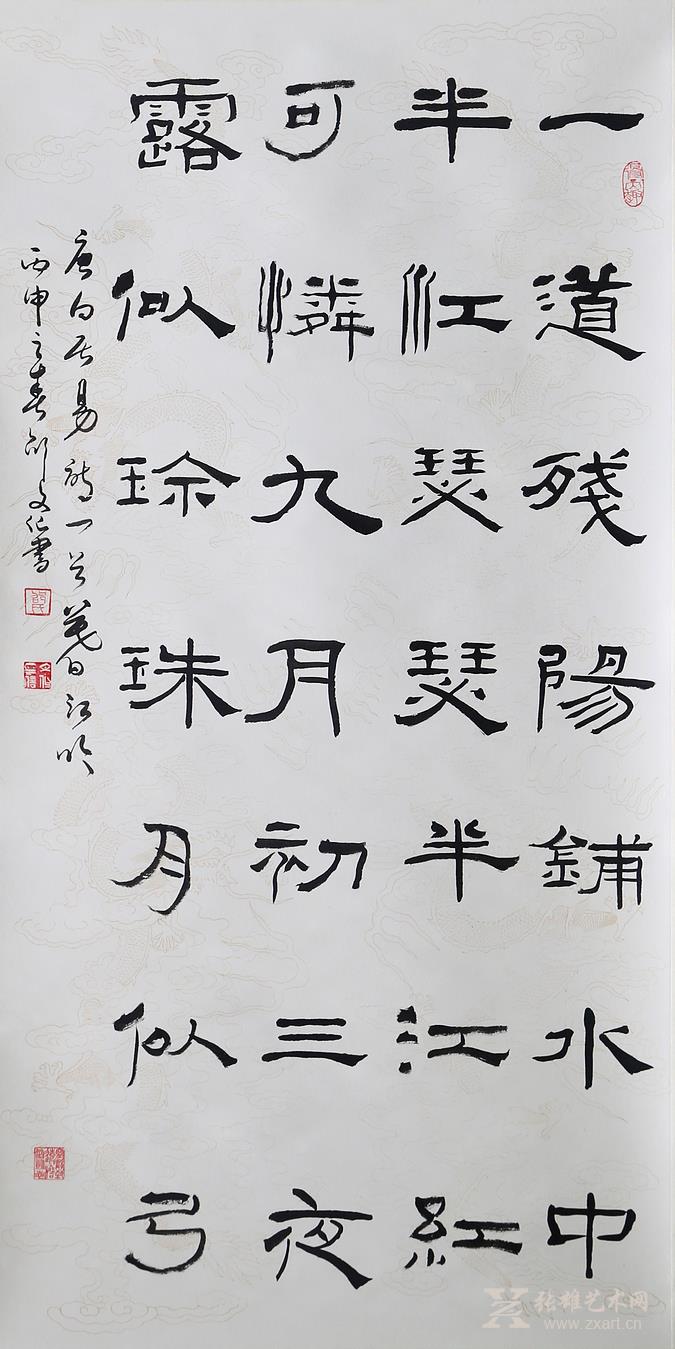 一道殘陽鋪水中
半江瑟瑟半江紅
可憐九月初三夜
露似珎珠月似弓
唐白居易詩一首暮江吟
丙申之春文化書
张雄艺术网
www.zxart.cn